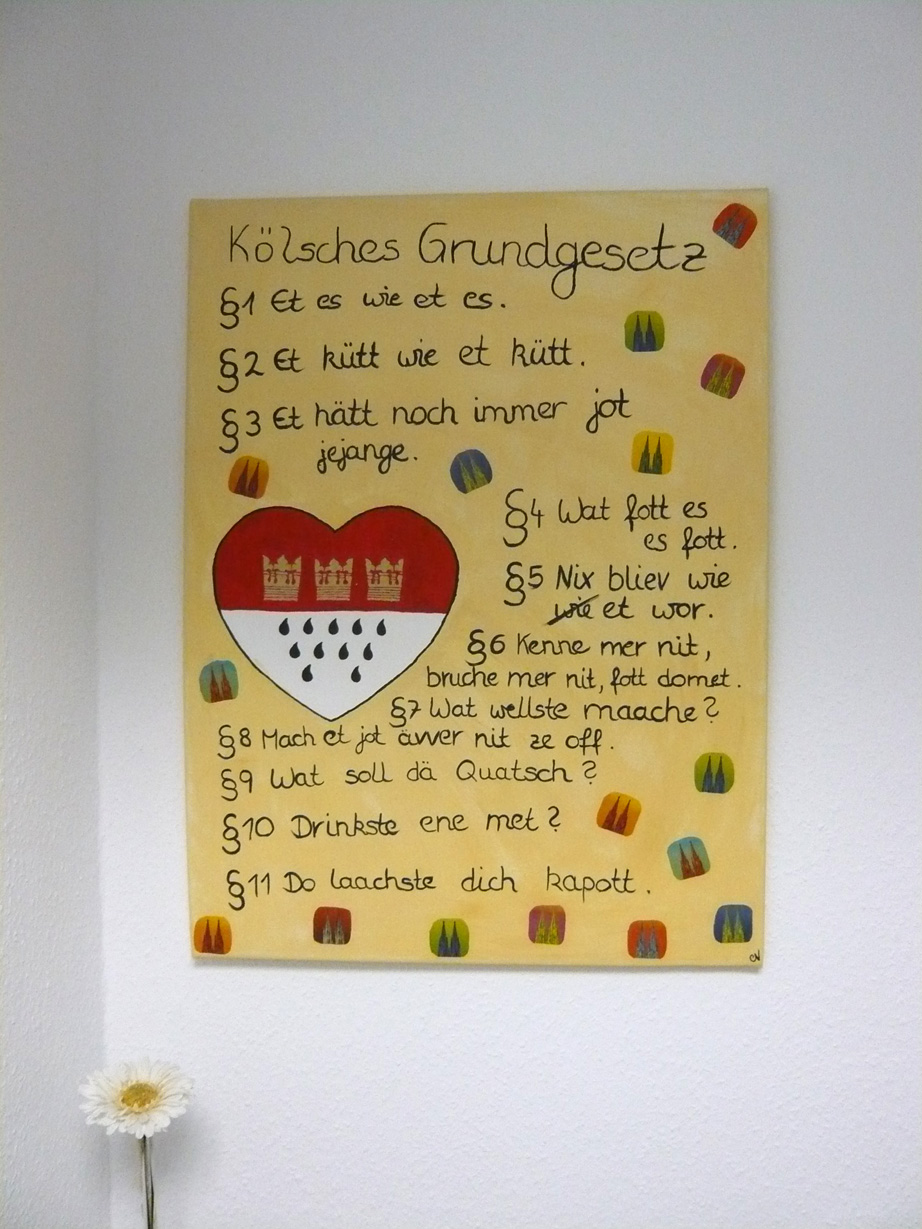 Kölsches Grundgesetz
§1 Et es wie et es.
§2 Et kütt wie et kütt.
§3 Et hätt noch immer jot
jejange.
§4 Wat fott es
es fott.
§5 Nix bliev wie
wie et wor.
§6 Kenne mer nit,
bruche mer nit, fott domet.
§7 Wat wellste maache?
§8 Mach et jot ävver nit ze off.
§9 Wat soll dä Quatsch?
§10 Drinkste ene met?
§11 Do laachste dich kapott.